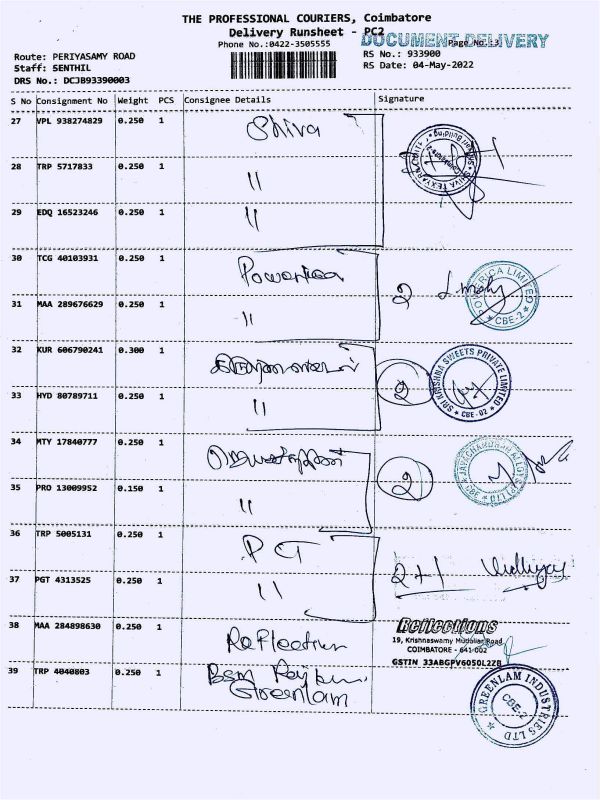 THE PROFESSIONAL COURIERS, Coimbatore
Delivery Runsheet - PC2
Phone No.:0422-3505555
DOCUMENT DELIVERY
Page No.:3
Route: PERIYASAMY ROAD
RS No.: 933900
Staff: SENTHIL
RS Date: 04-May-2022
DRS No.: DCJB93390003
S No Consignment No Weight PCS Consignee Details Signature
27 VPL 938274829 0.250 1 Shiva
28 TRP 5717833 0.250 1 "
29 EDQ 16523246 0.250 1 "
30 TCG 40103931 0.250 1
2
POWERICA LIMITED
* CBE-2 *
31 MAA 289676629 0.250 1 "
32 KUR 606790241 0.300 1
2
SRI KRISHNA SWEETS PRIVATE LIMITED
* CBE-02 *
33 HYD 80789711 0.250 1 "
34 MTY 17840777 0.250 1
2
35 PRO 13009952 0.150 1 "
36 TRP 5005131 0.250 1
2+1
37 PGT 4313525 0.250 1 "
38 MAA 284898630 0.250 1 Reflection
Reflections
19, Krishnaswamy Mudaliar Road
COIMBATORE - 641 002
GSTIN 33ABGPV6050L2ZB
39 TRP 4040803 0.250 1
Greenlam
GREENLAM INDUSTRIES LTD
CBE-2